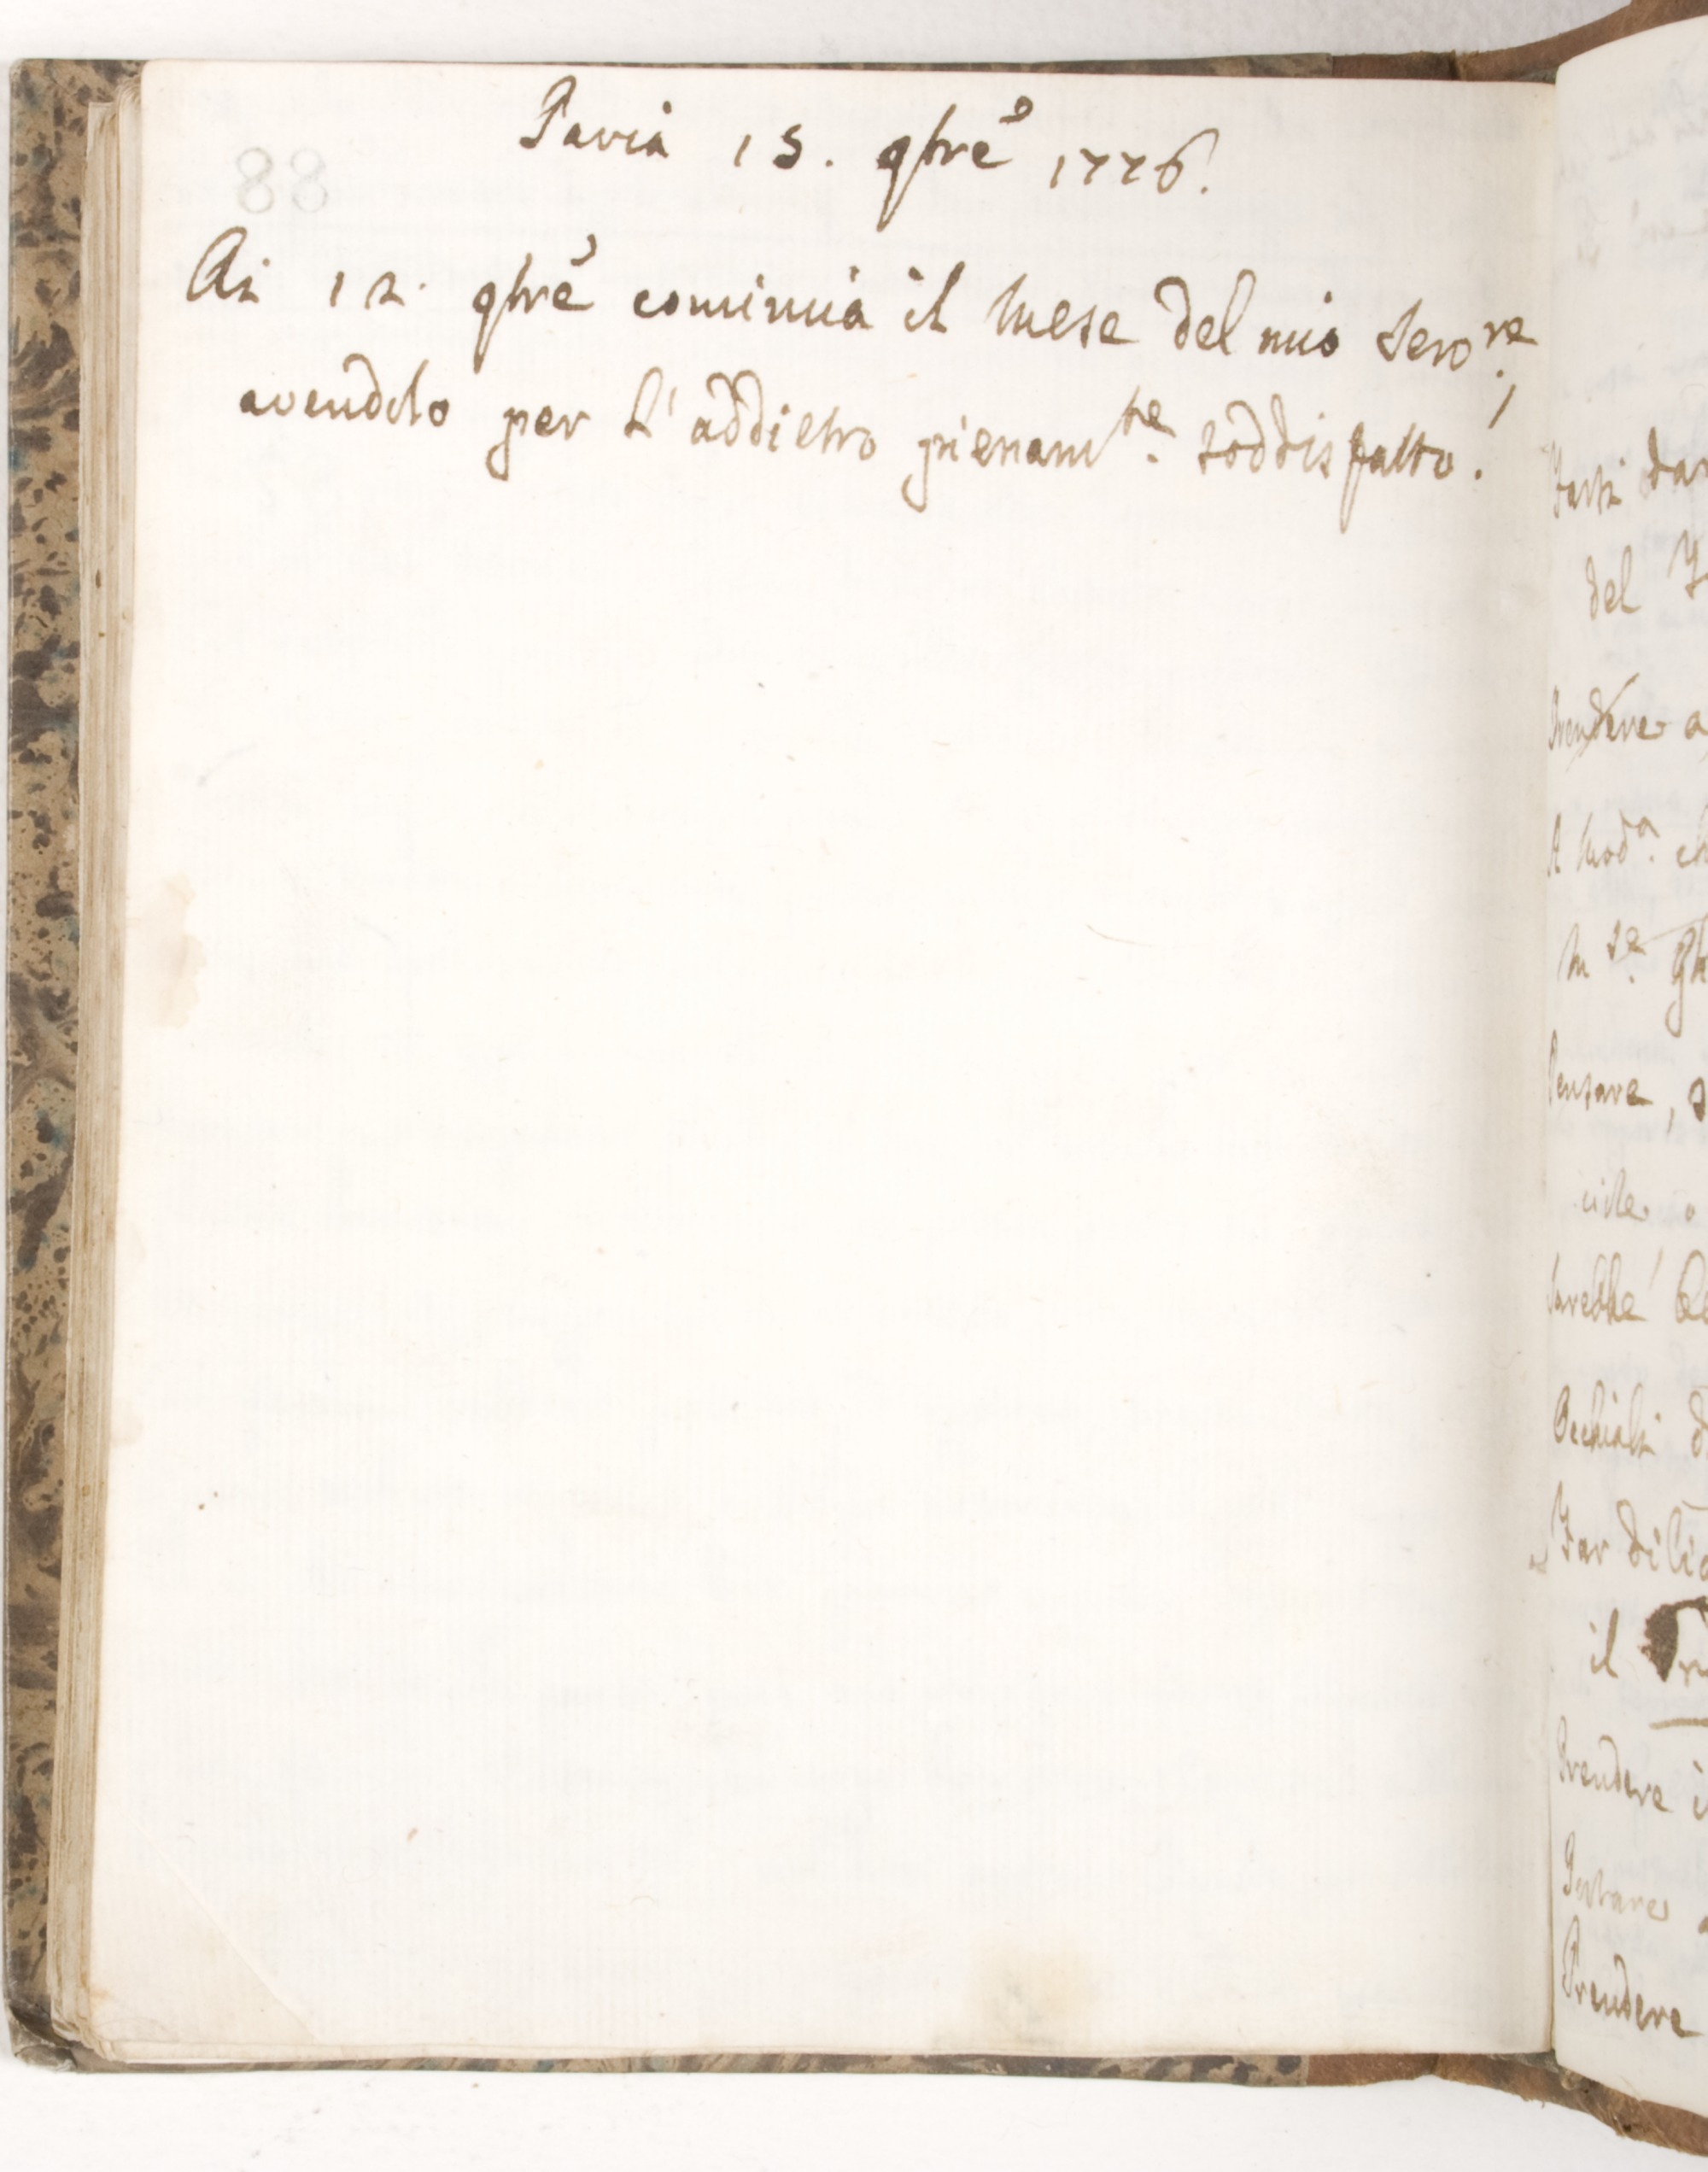 88
Pavia 15. 9bre 1776.
Ai 12. 9bre comincia il mese del mio Servre.,
avendolo per l'addietro pienamte. soddisfatto.
del
Prendere a
Pensare,
sarebbe
Occhiali
Far
il
Prendere
Prendere